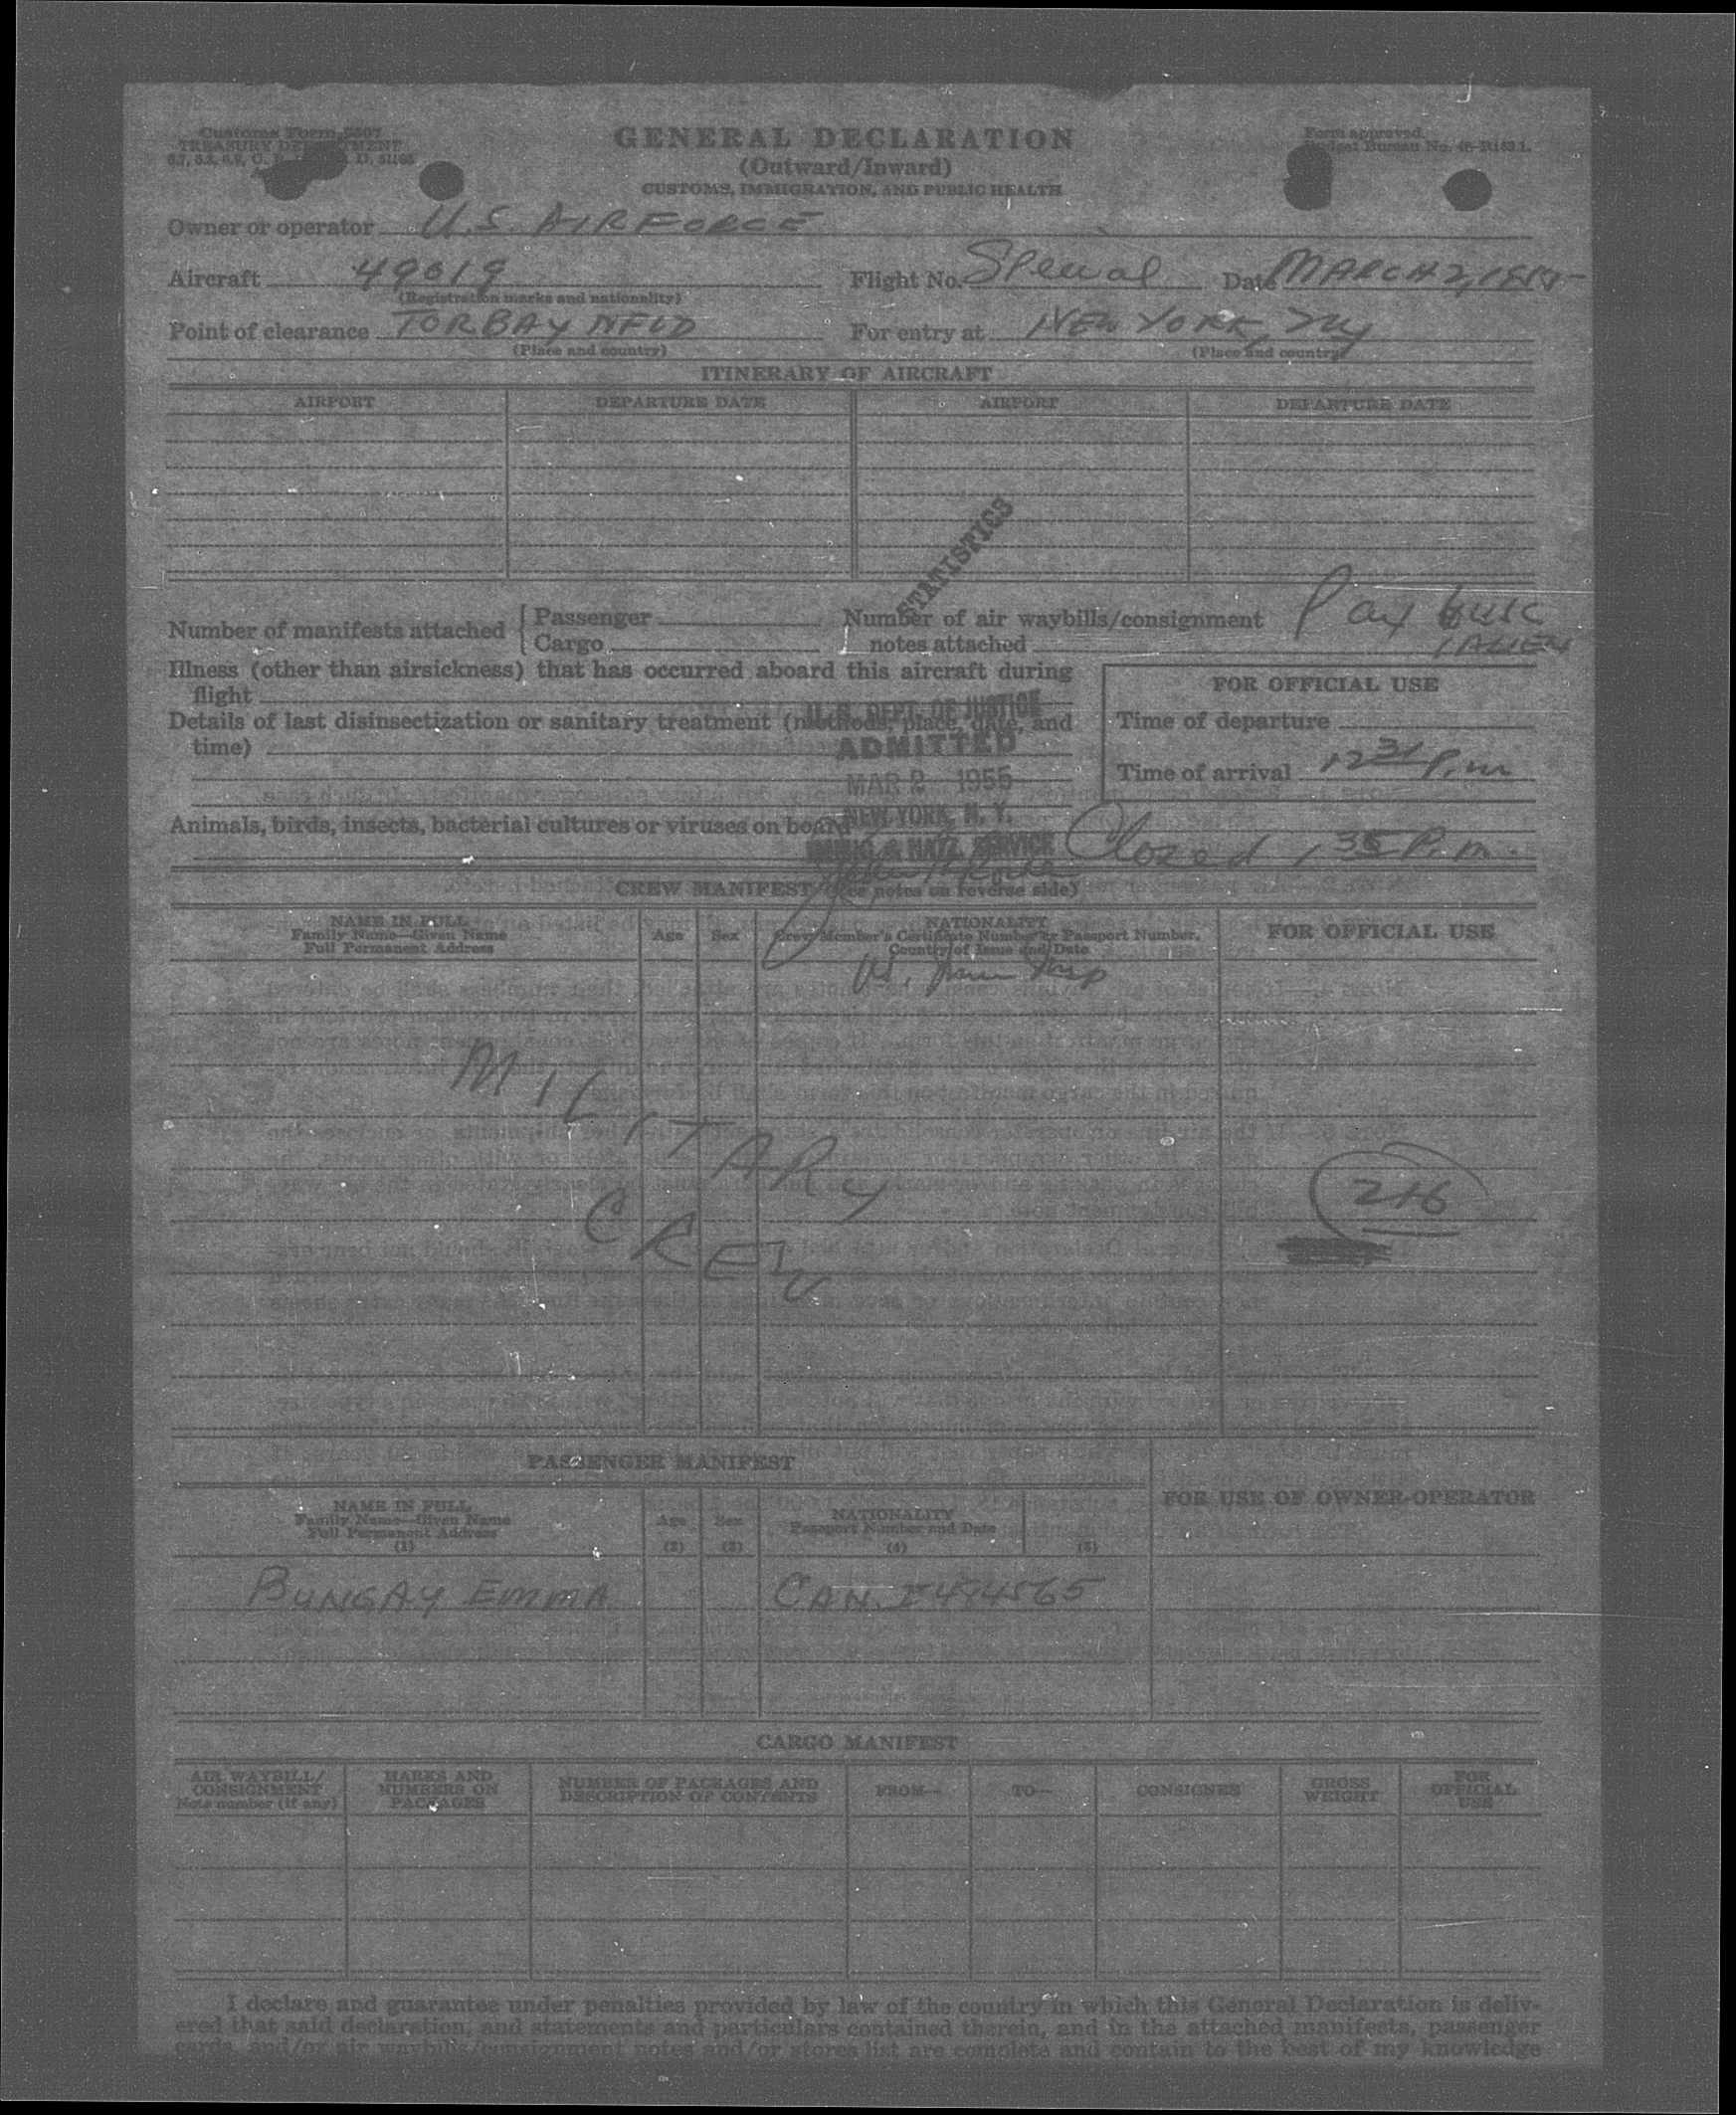 Customs Form 5507
TREASURY DEPARTMENT
GENERAL DECLARATION
(Outward/Inward)
CUSTOMS, IMMIGRATION, AND PUBLIC HEALTH
Form approved.
Budget Bureau No.
Owner or operator U.S. AIRFORCE
Aircraft 49019 Flight No. Special Date MARCH 2, 1955
(Registration marks and nationality)
Point of clearance TORBAY NFLD For entry at NEW YORK, NY
(Place and country) (Place and country)
ITINERARY OF AIRCRAFT
AIRPORT DEPARTURE DATE AIRPORT DEPARTURE DATE
STATISTICS
Number of manifests attached { Passenger Number of air waybills/consignment
Cargo notes attached
1 ALIEN
Illness (other than airsickness) that has occurred aboard this aircraft during
flight
FOR OFFICIAL USE
Details of last disinsectization or sanitary treatment (method, place, date, and
time)
Time of departure
Time of arrival 12 31 P.m
U. S. DEPT. OF JUSTICE
ADMITTED
MAR 2 1955
NEW YORK, N. Y.
IMMIG & NATZ. SERVICE
Animals, birds, insects, bacterial cultures or viruses on board
Closed 1 35 P.m.
CREW MANIFEST (See notes on reverse side)
NAME IN FULL
Family Name—Given Name
Full Permanent Address
Age Sex
NATIONALITY
Crew Member's Certificate Number or Passport Number,
Country of Issue and Date
FOR OFFICIAL USE
MILITARY
CREW
216
PASSENGER MANIFEST
FOR USE OF OWNER-OPERATOR
NAME IN FULL
Family Name—Given Name
Full Permanent Address
(1)
Age
(2)
Sex
(3)
NATIONALITY
Passport Number and Date
(4) (5)
BUNGAY EMMA CAN. I 474565
CARGO MANIFEST
AIR WAYBILL/
CONSIGNMENT
Note number (if any)
MARKS AND
NUMBERS ON
PACKAGES
NUMBER OF PACKAGES AND
DESCRIPTION OF CONTENTS
FROM— TO— CONSIGNEE
GROSS
WEIGHT
FOR
OFFICIAL
USE
I declare and guarantee under penalties provided by law of the country in which this General Declaration is deliv-
ered that said declaration, and statements and particulars contained therein, and in the attached manifests, passenger
cards, and/or air waybills/consignment notes and/or stores list are complete and contain to the best of my knowledge